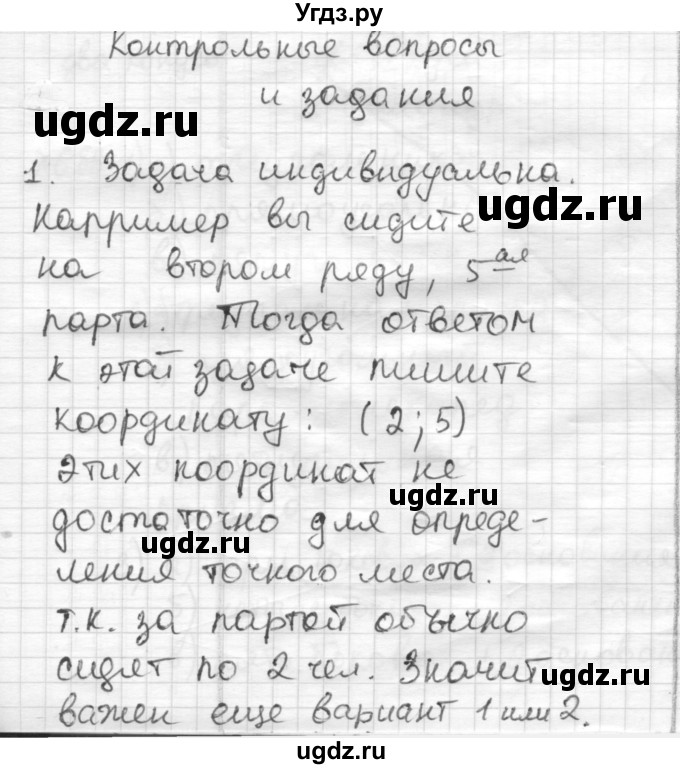 Угдз.ру
Контрольные вопросы
и задания
ugdz.ru
1. Задача индивидуальна.
ugdz.ru
Например вы сидите
на втором ряду, 5ая
парта. Тогда ответом
к этой задаче пишите
координату: (2; 5)
Этих координат не
ugdz.ru
достаточно для опреде-
ugdz.ru
ления точного места.
т.к. за партой обычно
сидят по 2 чел. Значит
ugdz.ru
важен еще вариант 1 или 2.
ugdz.ru